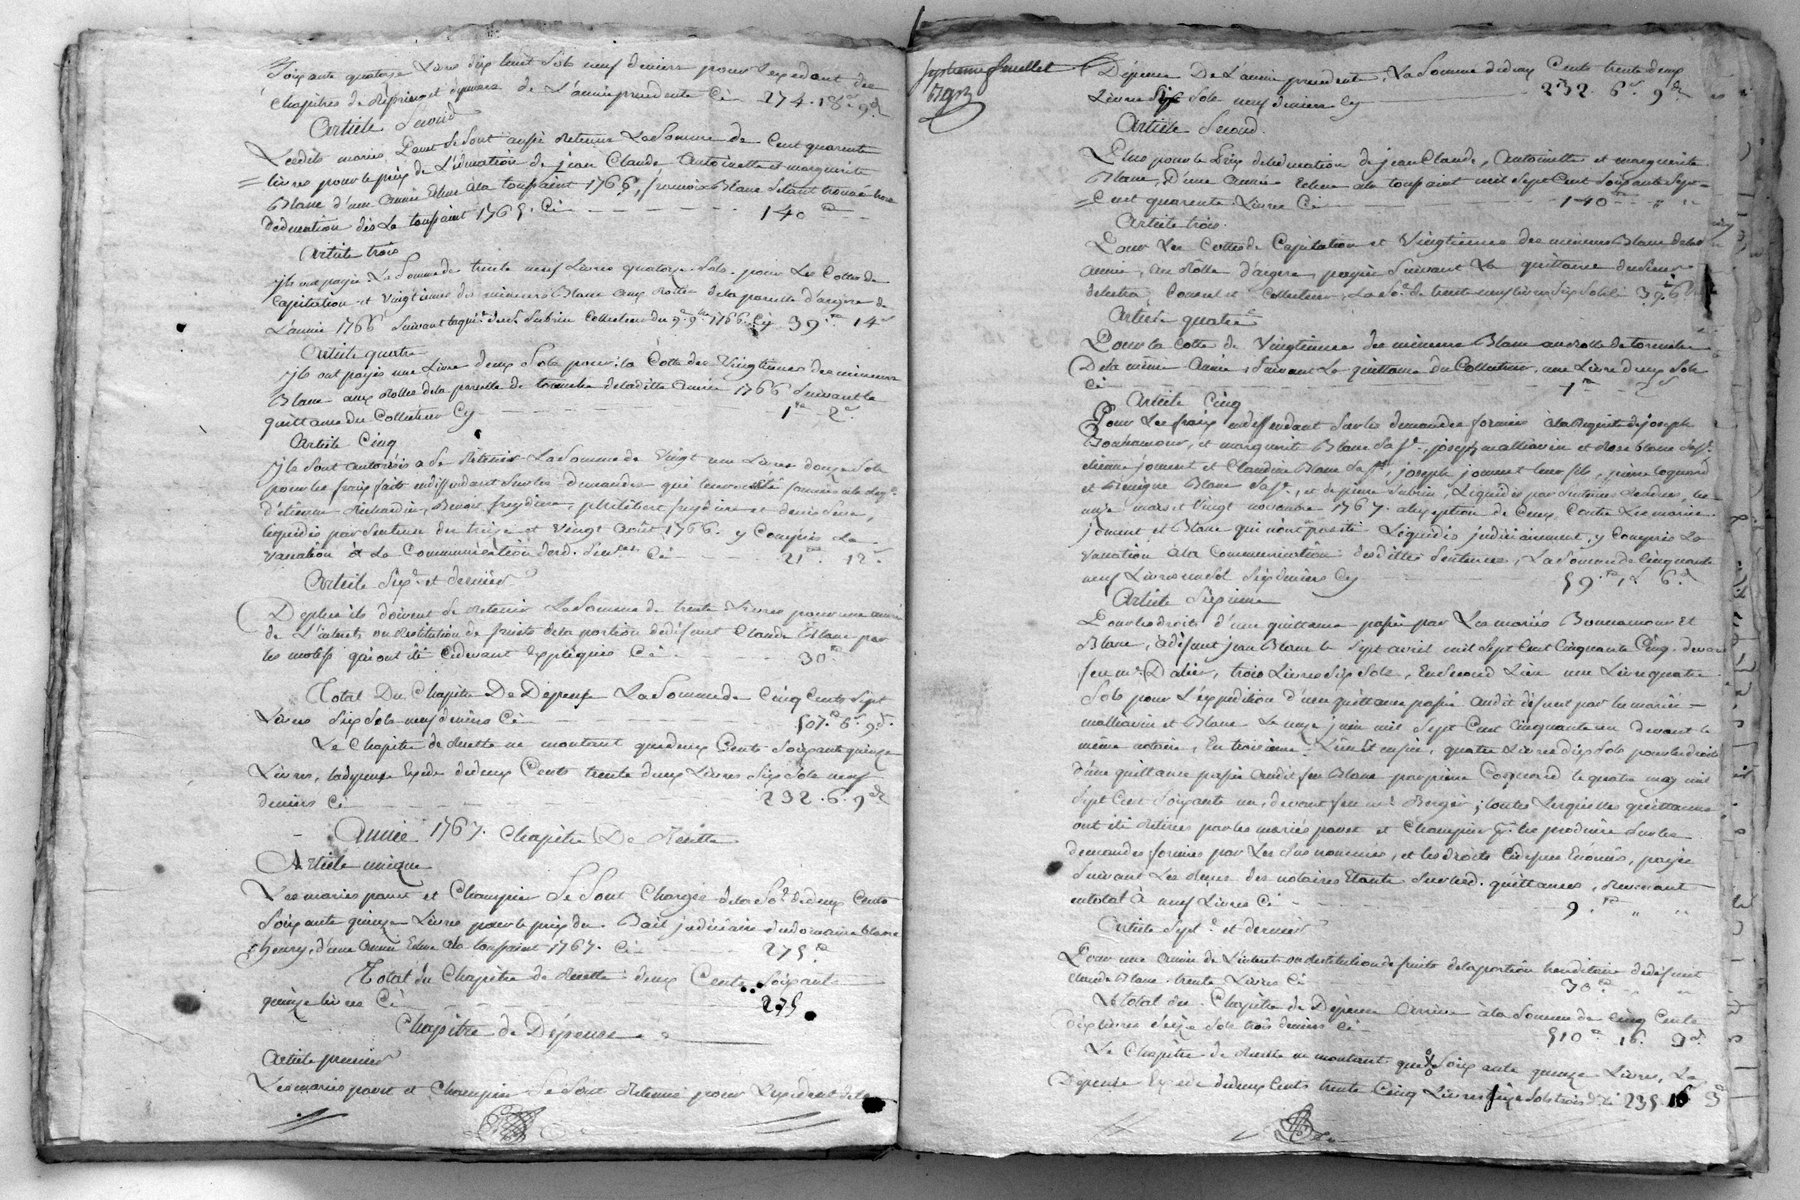 soixante quatorze Livres dix huit sols neuf deniers pour L'excedent des
chapitres de Reprise et depense de L'année precedente Ci 274. 18s. 9d
Article Second
Lesdits mariés Pavet se sont aussi Retenus La Somme de Cent quarente
livres pour le prix de L'éducation de jean Claude Antoinette et marguerite
Blanc d'une année Echue à la toussaint 1766, françoise Blanc s'étant trouvée hors
d'éducation dès La toussaint 1765. Ci 140
Article trois
jls ont payé La Somme de trente neuf Livres quatorze Sols pour Les Cottes de
Capitation et Vingtiemes des mineurs Blanc aux Rolles de la paroisse d'aigre de
L'année 1766 suivant la quit. du Sr. Subrin Collecteur du 9e 9bre 1766. Cy 39 14s
Article quatre
jls ont payés une Livre deux Sols pour la Cotte des Vingtiemes des mineurs
Blanc aux Rolles de la paroisse de de laditte Année 1766 Suivant la
quittance du Collecteur Cy 1 2s
Article Cinq
jls sont autorisés a se Retenir La Somme de Vingt une Livres douze sols
pour les frais faits en deffendant sur les demandes qui leur ont été formées à la Reqte
d'étienne Richardin, Benoit freydiere, philibert freydiere et
liquidés par Sentence des treize et Vingt Août 1766. y Compris La
Vacation à La Communication desd. Sentces. Ci 21 12s
Article Six. et dernier
De plus ils doivent se Retenir La Somme de trente Livres pour une année
de L'interet ou Restitution de fruits de la portion de défunt Claude Blanc par
les motifs qui ont été cidevant Expliqués Ci 30
Total Du Chapitre De Depense La Somme de Cinq Cents Sept
Livres Six Sols neuf deniers Ci 507. 6s. 9d.
Le Chapitre de Recette ne montant que deux Cents Soixante quinze
Livres, la depense Excede de deux Cents trente deux Livres Six Sols neuf
deniers Ci 232. 6. 9d
Année 1767. Chapitre De Recette
Article unique
Les mariés pavet et Champier Se Sont Chargés de la So. de deux Cents
Soixante quinze Livres pour le prix du Bail judiciaire du domaine Blanc
d'une année Echue à la toussaint 1767. Ci 275
Total du Chapitre de Recette deux Cents Soixante
quinze livres Ci 275
Chapitre de Dépense
Article premier
Les mariés pavet et Champier Se Sont Retenus pour L'excedent de la
septieme feuillet
Dépense De L'année precedente, La Somme de deux Cents trente deux
Livres Six Sols neuf deniers Cy 232. 6s. 9d.
Article Second.
Plus pour le Prix de l'education de jean Claude, Antoinette et marguerite
Blanc, D'une Année Echue à la toussaint mil Sept Cent Soixante Sept
Cent quarente Livres Ci 140
Article trois.
Pour Les Cottes de Capitation et Vingtiemes des mineurs Blanc de lad.
année, au Rolle d'aigre, payées Suivant La quittance du Sieur
Consul et Collecteur, La So. de trente neuf livres Six Sols Ci 39 6s
Article quatre
Pour la Cotte de Vingtiemes des mineurs Blanc au Rolle de
De la même Année, Suivant La quittance du Collecteur, une Livre deux Sols
Ci 1 2s
Article Cinq
Pour Les frais en deffendant Sur les demandes formées à la Requete de joseph
Bonnamour, et marguerite Blanc Sa fe. joseph malliavin et Rose Blanc Sa fe.
etienne joment et Claudine Blanc Sa fe. joseph joment leur fils, pierre Coquard
et Benigne Blanc Sa fe., et de pierre Subrin, Liquidés par Sentences Rendues, les
onze mars et Vingt novembre 1767. à l'exception de Ceux Contre Les mariés
joment et Blanc qui n'ont pas été Liquidés judiciairement, y Compris La
Vacation à la Communication desdittes Sentences, La Somme de Cinquante
neuf Livres un Sol Six deniers Cy 59. 1s. 6d
Article Sixieme
Pour les droits d'une quittance passée par Les mariés Bonnamour Et
Blanc, à défunt jean Blanc le Sept avril mil Sept Cent Cinquante Cinq. devant
feu me Dalier, trois Livres Six Sols, En Second Lieu une Livre quatre
Sols pour L'expedition d'une quittance passée audit défunt par les mariés
malliavin et Blanc Le onze juin mil Sept Cent Cinquante un devant le
même notaire, En troisieme Lieu Et enfin, quatre Livres dix Sols pour les droits
d'une quittance passée audit feu Blanc par pierre Coquard le quatre may mil
Sept Cent Soixante un, devant feu me Berger; toutes Lesquelles quittances
ont été Retirées par les mariés pavet et Champier pr. les produire Sur les
demandes formées par Les Sus nommés, et les droits Cidessus Enoncés, payés
Suivant Les Reçus des notaires Etants Sur lesd. quittances, Revenant
en total à neuf Livres Ci 9
Article Sept. et dernier
Pour une année de L'interet ou Restitution de fruits de la portion hereditaire de défunt
Claude Blanc trente Livres Ci 30
Le total du Chapitre de Dépense arrive à la Somme de Cinq Cents
Dix livres Seize Sols trois deniers Ci 510 16. 3d.
Le Chapitre de Recette ne montant que Soixante quinze Livres, La
Depense Excede de deux Cents trente Cinq Livres Seize Sols trois d. Ci 235 16 3